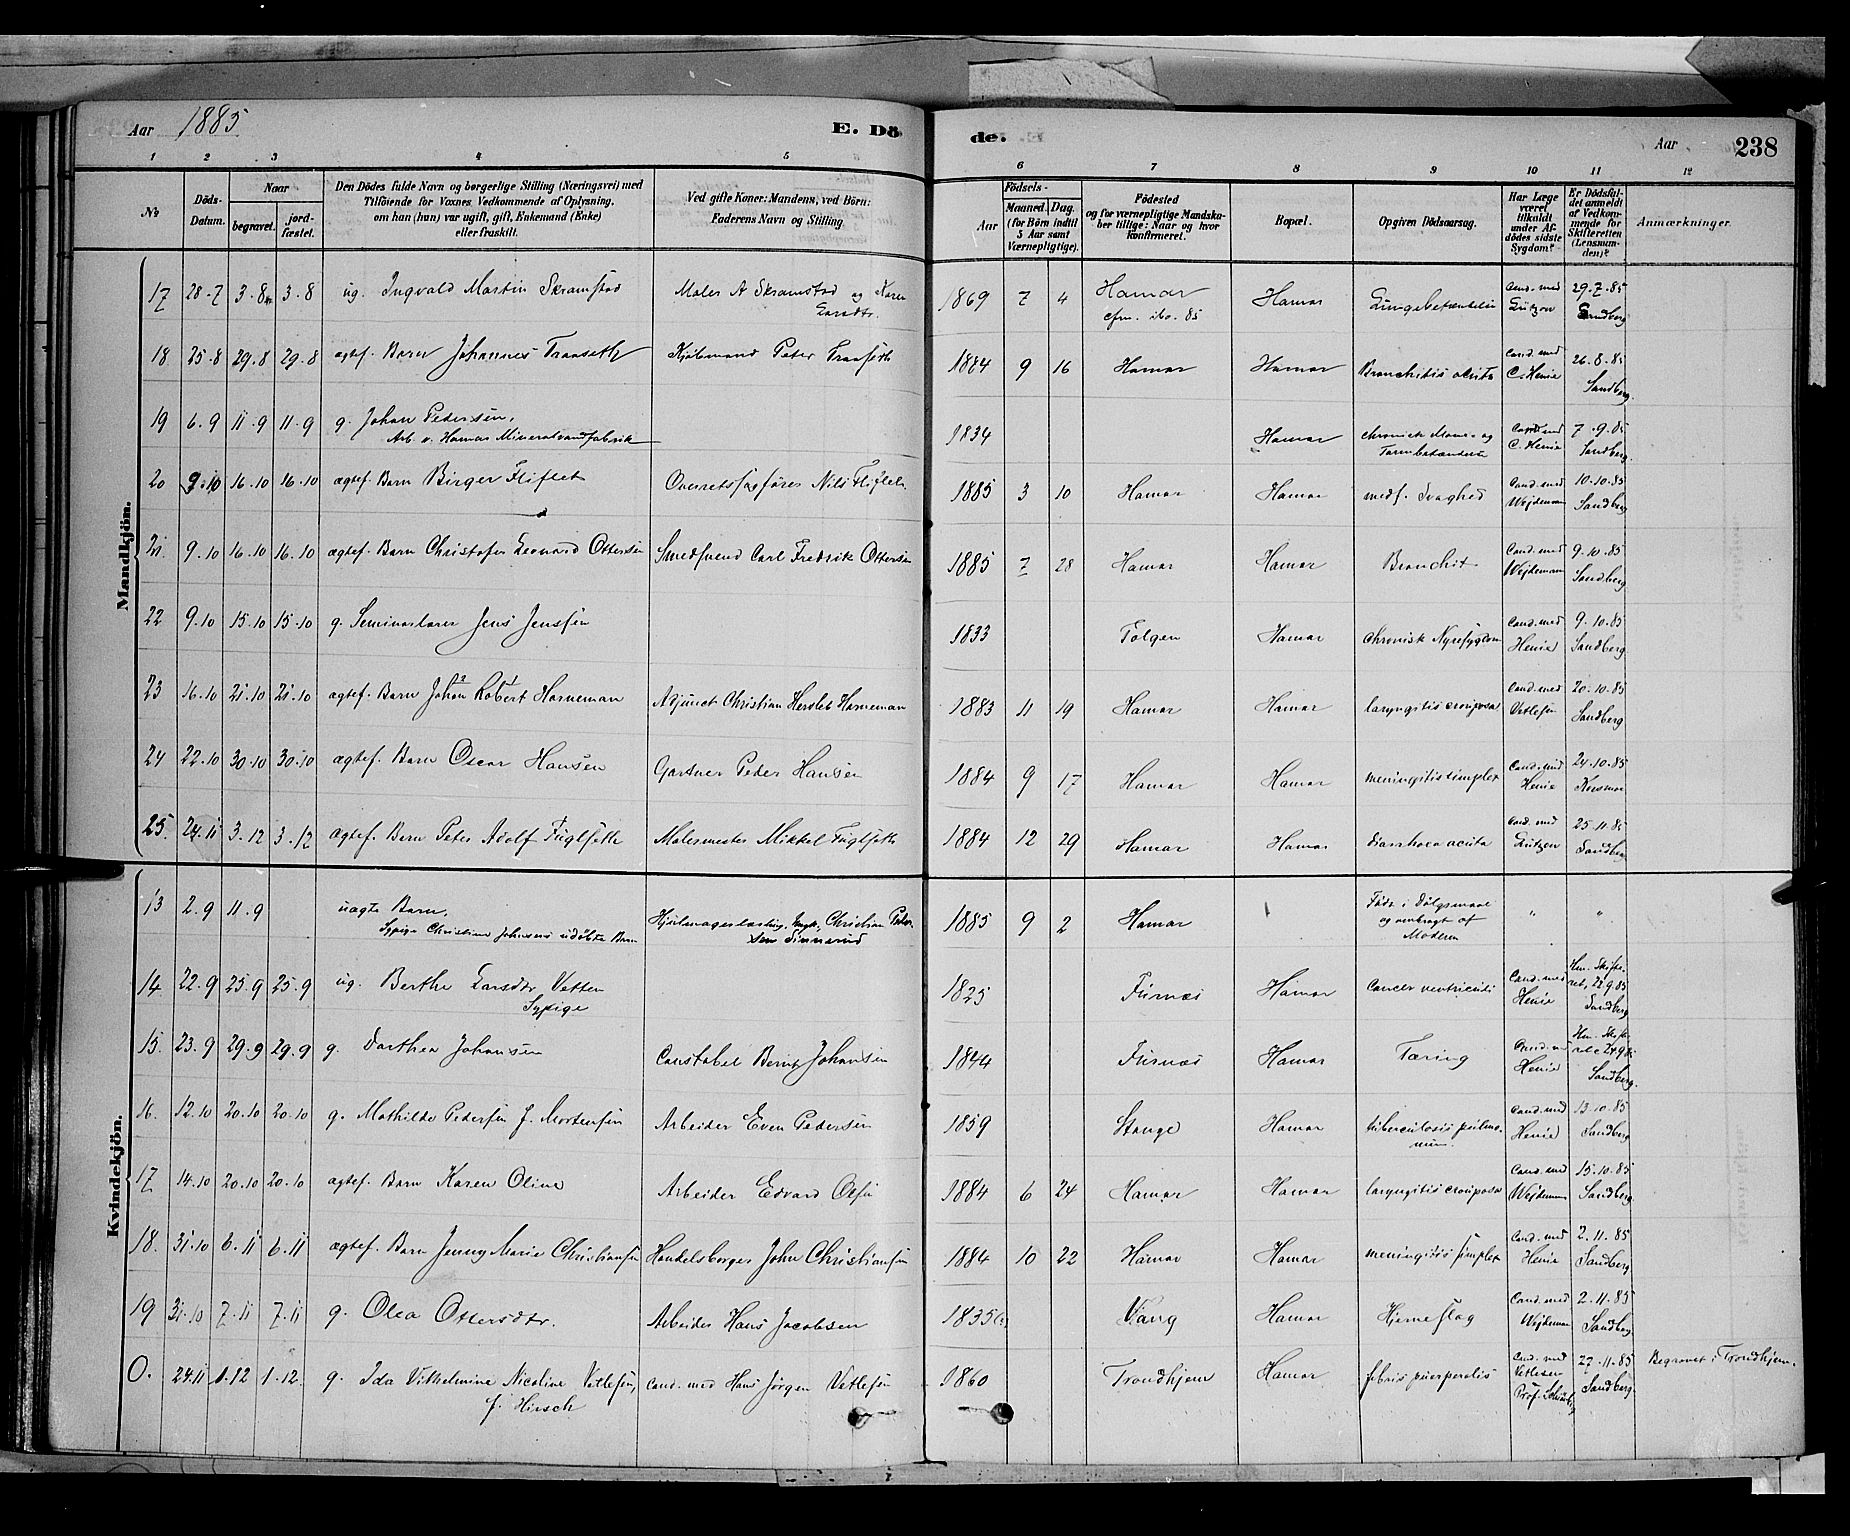 Aar 1885 E. Dö de. Aar 238
1 2 3 4 5 6 7 8 9 10 11 12
No
Döds-Datum.
Naar
begravet.
jord-fæstet.
Den Dödes fulde Navn og borgerlige Stilling (Næringsvei) med
Tilföiende for Voxnes Vedkommende af Oplysning,
om han (hun) var ugift, gift, Enkemand (Enke)
eller fraskilt.
Ved gifte Koner: Mandens, ved Börn:
Faderens Navn og Stilling.
Födsels-
Aar
Maaned. Dag.
(for Börn indtil
5 Aar samt
Værnepligtige).
Födested
og for værnepligtige Mandska-
ber tillige: Naar og hvor
konfirmeret.
Bopæl.
Opgiven Dödsaarsag.
Har Læge
været
tilkaldt
under Af-
dödes sidste
Sygdom?
Er Dödsfal-
det anmeldt
af Vedkom-
mende for
Skifteretten
(Lensman-
den)?
Anmærkninger.
Mandkjön.
17 28-7 3-8 3-8 ug. Ingvald Martin Skramstad Maler A Skramstad og Karen 1869 7 4 Hamar Hamar Lungebetændelse Cand. med 29.7.85
Larsdtr. cfm. ibo. 85 Lützow Sandberg
18 25-8 29-8 29-8 ægtef. Barn Johannes Traaseth Kjøbmand Peter Traaseth 1884 9 16 Hamar Hamar Bronchitis acuta Cand. med C. Henie 26.8.85 Sandberg
19 6.9 11.9 11.9 g. Johan Pedersen, 1834 Hamar chronisk Mave- og Cand. med 7.9.85
Arb. v. Hamar Mineralvandfabrik Tarmbetændelse C. Henie Sandberg
20 9.10 16.10 16.10 ægtef. Barn Birger Fliflet Overretssagfører Nils Fliflet 1885 3 10 Hamar Hamar medf. Svaghed Cand. med Wejdeman 10.10.85 Sandberg
21 9.10 16.10 16.10 ægtef. Barn Christofer Leonard Ottersen Smedsvend Carl Fredrik Ottersen 1885 7 28 Hamar Hamar Bronchit Cand. med Wejdeman 9.10.85 Sandberg
22 9.10 15.10 15.10 g. Seminarlærer Jens Jensen 1833 Tolgen Hamar chronisk Nyresygdom Cand. med Henie 9.10.85 Sandberg
23 16.10 21.10 21.10 ægtef. Barn Johan Robert Horneman Adjunct Christian Hersleb Horneman 1883 11 19 Hamar Hamar laryngitis crouposa Cand. med Vetlesen 20.10.85 Sandberg
24 22.10 30.10 30.10 ægtef. Barn Oscar Hansen Gartner Peder Hansen 1884 9 17 Hamar Hamar meningitis simplex Cand. med Henie 24.10.85
25. 24.11 3.12 3.12 ægtef. Barn Peter Adolf Fuglseth Malermester Mikkel Fuglseth 1884 12 29 Hamar Hamar diarrhoea acuta Cand. med Lützow 25.11.85 Sandberg
Kvindekjön.
13 2.9 11.9 uægte Barn, Christian Peder- 1885 9 2 Hamar Født i Dølgsmaal " "
Sypige Christine Johnsens udøbte Barn sen Finnerud og ombragt af
Moderen
14 22.9 25.9 25.9 ug. Berthe Larsdtr Vetten 1825 Furnæs Hamar Cancer ventriculi Cand. med Hm. Skifte-
Sypige Henie ret, 22.9.85 Sandberg
15. 23.9 29.9 29.9 g. Dorthea Johansen Constabel Bernt Johansen 1844 Furnæs Hamar Tæring Cand. med Henie Hm. Skifteret 24.9.85 Sandberg.
16. 12.10 20.10 20.10 g. Mathilde Pedersen f. Mortensen Arbeider Even Pedersen 1859 Stange Hamar tuberculosis pulmo- num. Cand. med Henie 13.10.85 Sandberg
17 14.10 20.10 20.10 ægtef. Barn Karen Oline Arbeider Edvard Olsen 1884 6 24 Hamar Hamar laryngitis crouposa Cand. med Wejdeman 15.10.85 Sandberg
18. 31.10 6.11 6.11 ægtef. Barn Jenny Marie Christiansen Handelsborger John Christiansen 1884 10 22 Hamar Hamar meningitis simplex Cand. med Henie 2.11.85 Sandberg
19 31.10 7.11 7.11 g. Olea Ottersdtr. Arbeider Hans Jacobsen 1835 Vang Hamar Hjerneslag Cand. med Wejdeman 2.11.85 Sandberg
0. 24.11 1.12 1.12. g. Ida Vilhelmine Nicoline Vetlesen, Cand. med Hans Jörgen Vetlesen 1860 Trondhjem Hamar febris puerperalis Cand. med Vetlesen 27.11.85 Sandberg Begravet i Trondhjem.
f. Hirsch Prof.